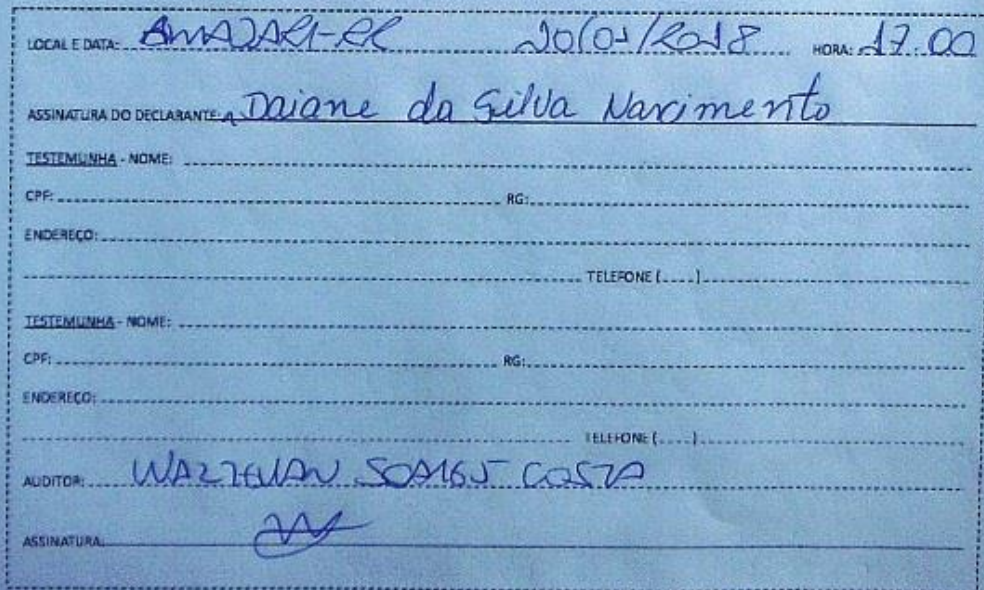 LOCAL E DATA: AMAJARI-RR 20/01/2018 HORA: 17:00
ASSINATURA DO DECLARANTE: Daiane da Silva Nascimento
TESTEMUNHA - NOME:
CPF: RG:
ENDEREÇO:
TELEFONE (.....)
TESTEMUNHA - NOME:
CPF: RG:
ENDEREÇO:
TELEFONE (.....)
AUDITOR: SOARES COSTA
ASSINATURA: